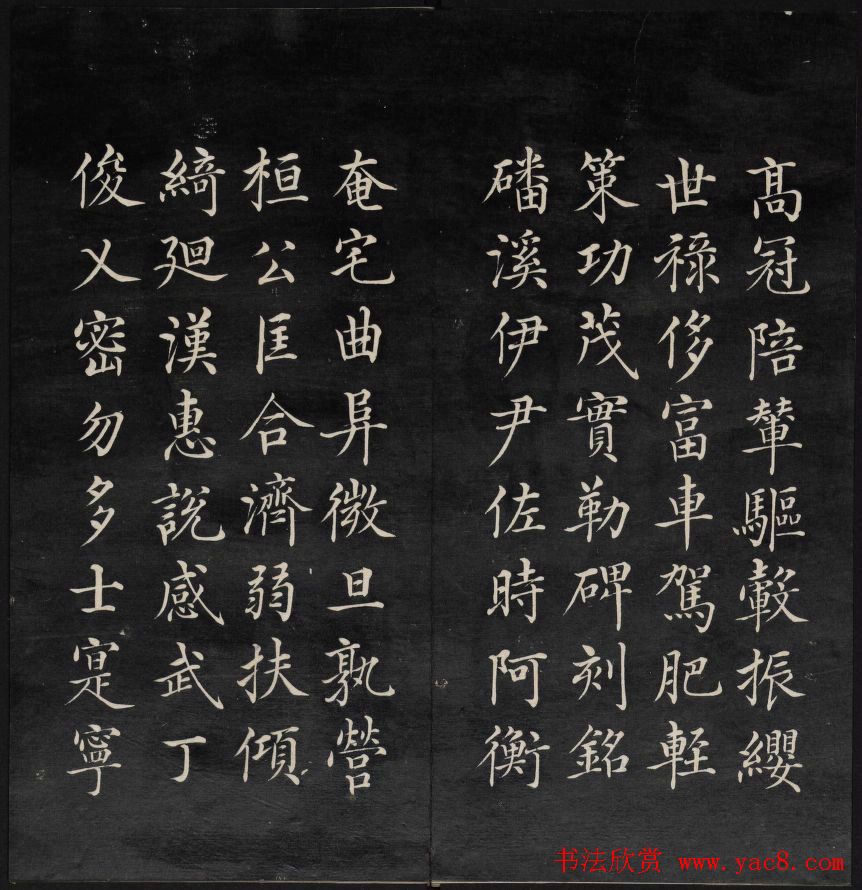 高冠陪輦驅轂振纓
世祿侈富車駕肥輕
策功茂實勒碑刻銘
磻溪伊尹佐時阿衡
奄宅曲阜微旦孰營
桓公匡合濟弱扶傾
綺迴漢惠說感武丁
俊乂密勿多士寔寧
书法欣赏 www.yac8.com